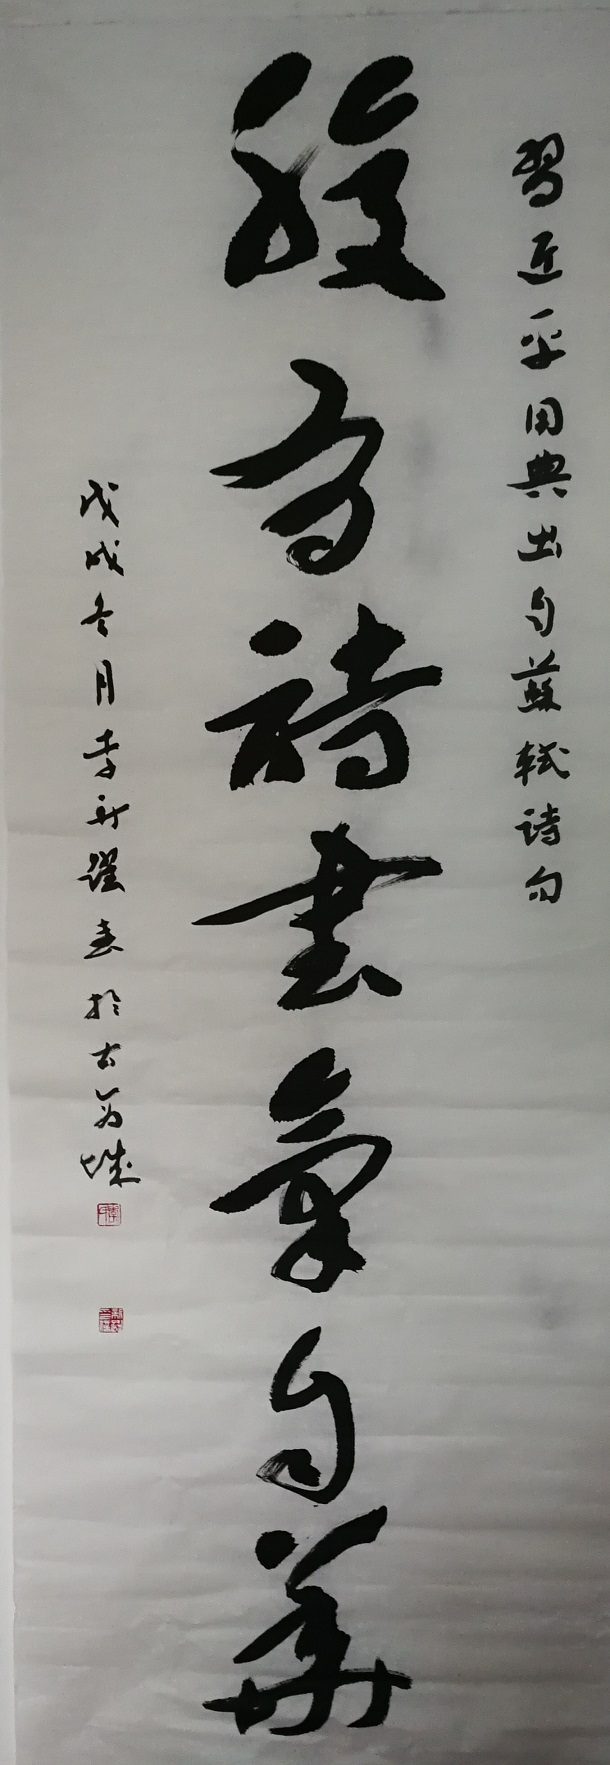 習近平用典出自蘇軾诗句
腹有詩書氣自華
戊戌冬月李新躍书於古翁城